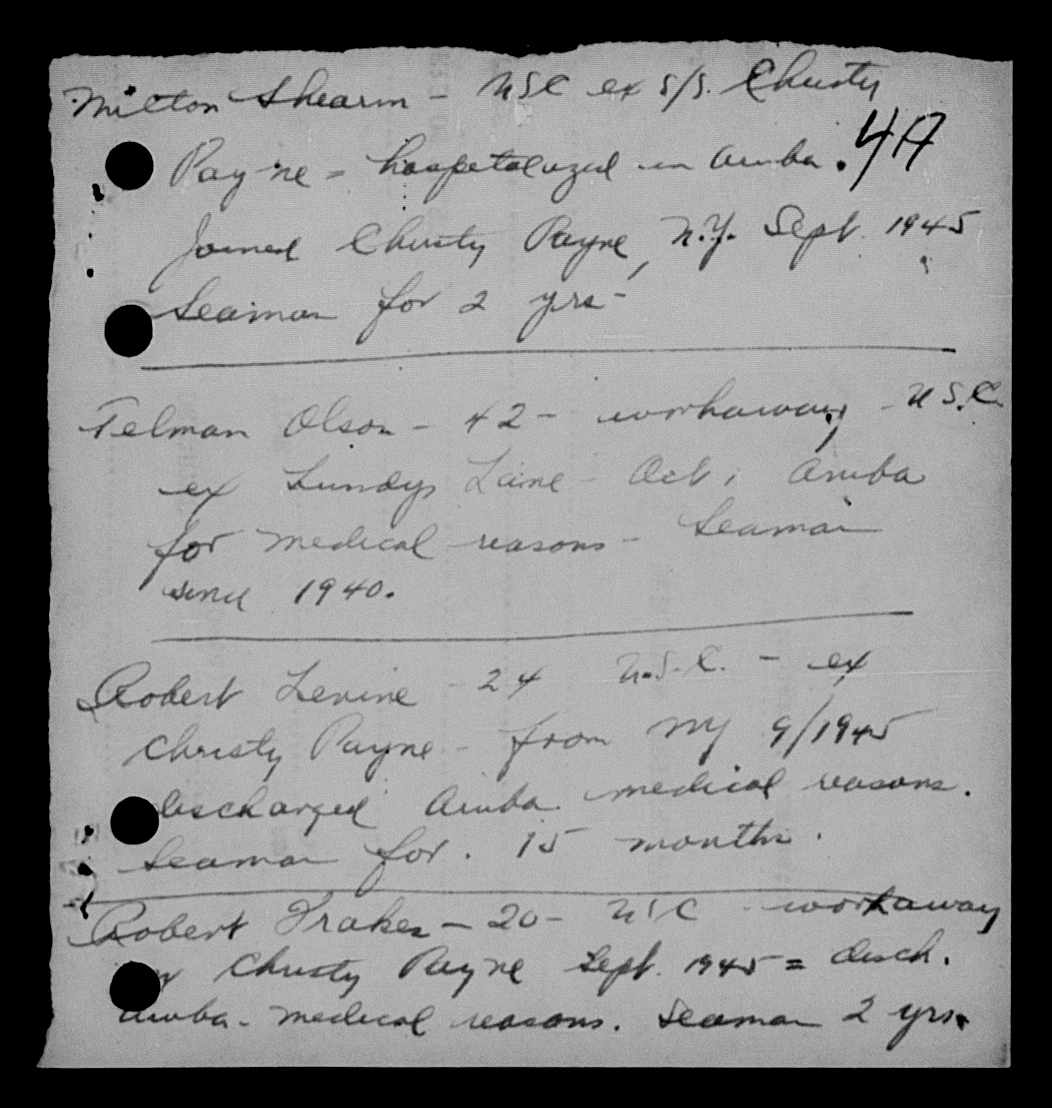 Milton Shearin - USC ex S/S. Christy
4A
Payne - hospitalized in Aruba.
Joined Christy Payne, N.Y. Sept. 1945
Seaman for 2 yrs-
Telman Olson - 42 - workaway - U.S.C.
ex Lundys Lane - Oct. Aruba
for medical reasons - Seaman
since 1940.
Robert Levine - 24 U.S.C. - ex
Christy Payne - from NY 9/1945
discharged Aruba medical reasons.
Seaman for. 15 months.
Robert Frakes - 20 - USC - workaway
ex Christy Payne Sept. 1945 = disch.
Aruba - medical reasons. Seaman 2 yrs.